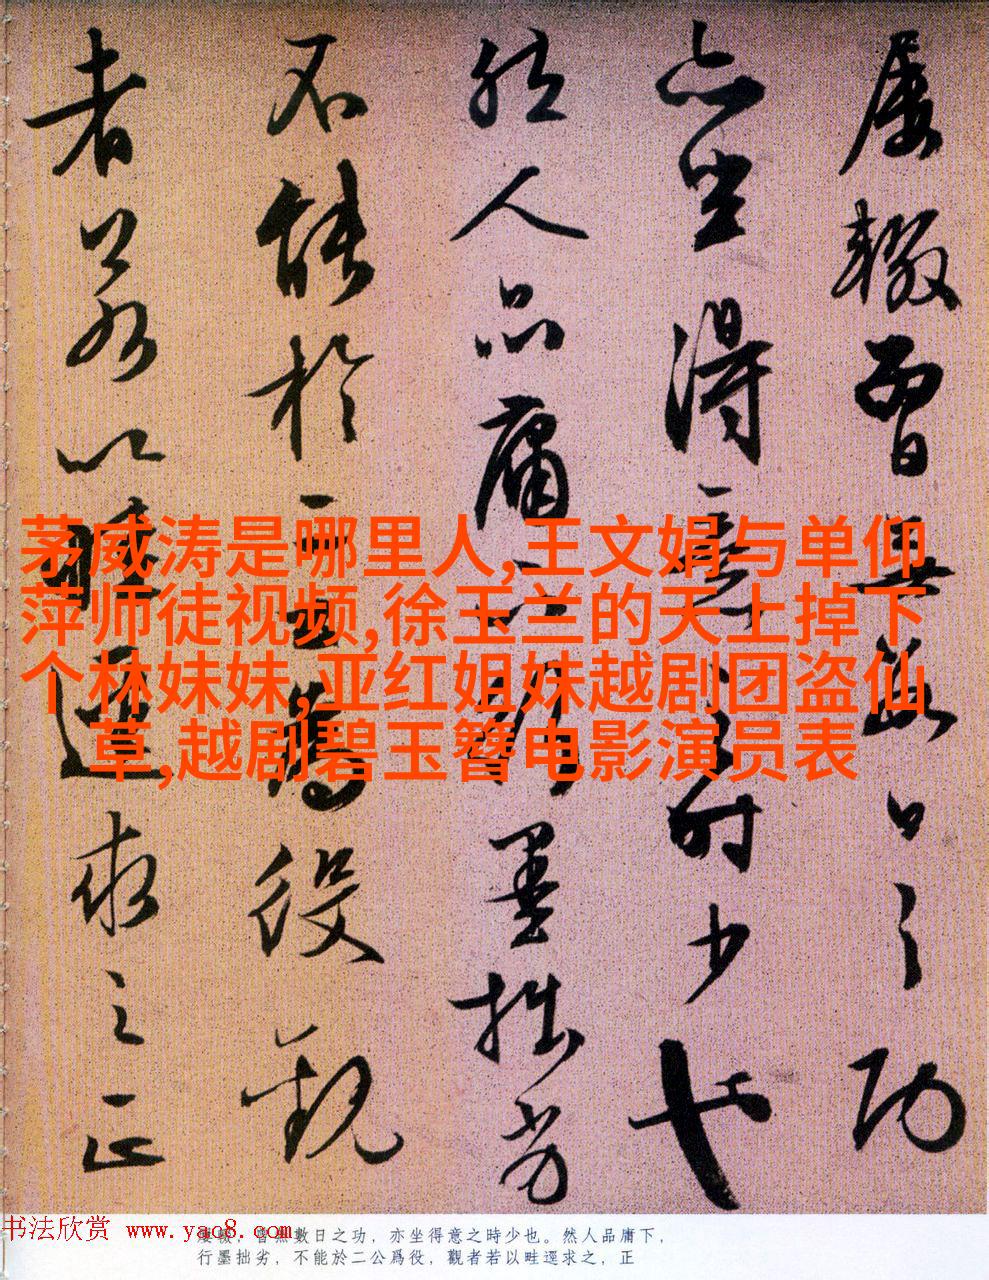 屡辍曾無數日之功
亦坐得意之時少也
然人品庸下行
墨拙劣
不能於二公爲役觀
者若以畦逕求之正
茅威涛是哪里人,王文娟与单仰
萍师徒视频,徐玉兰的天上掉下
个林妹妹,亚红姐妹越剧团盗仙
草,越剧碧玉簪电影演员表
书法欣赏 www.yac8.com
屡輟，曾無數日之功，亦坐得意之時少也。然人品庸下，
行墨拙劣，不能於二公爲役，觀者若以畦逕求之，正